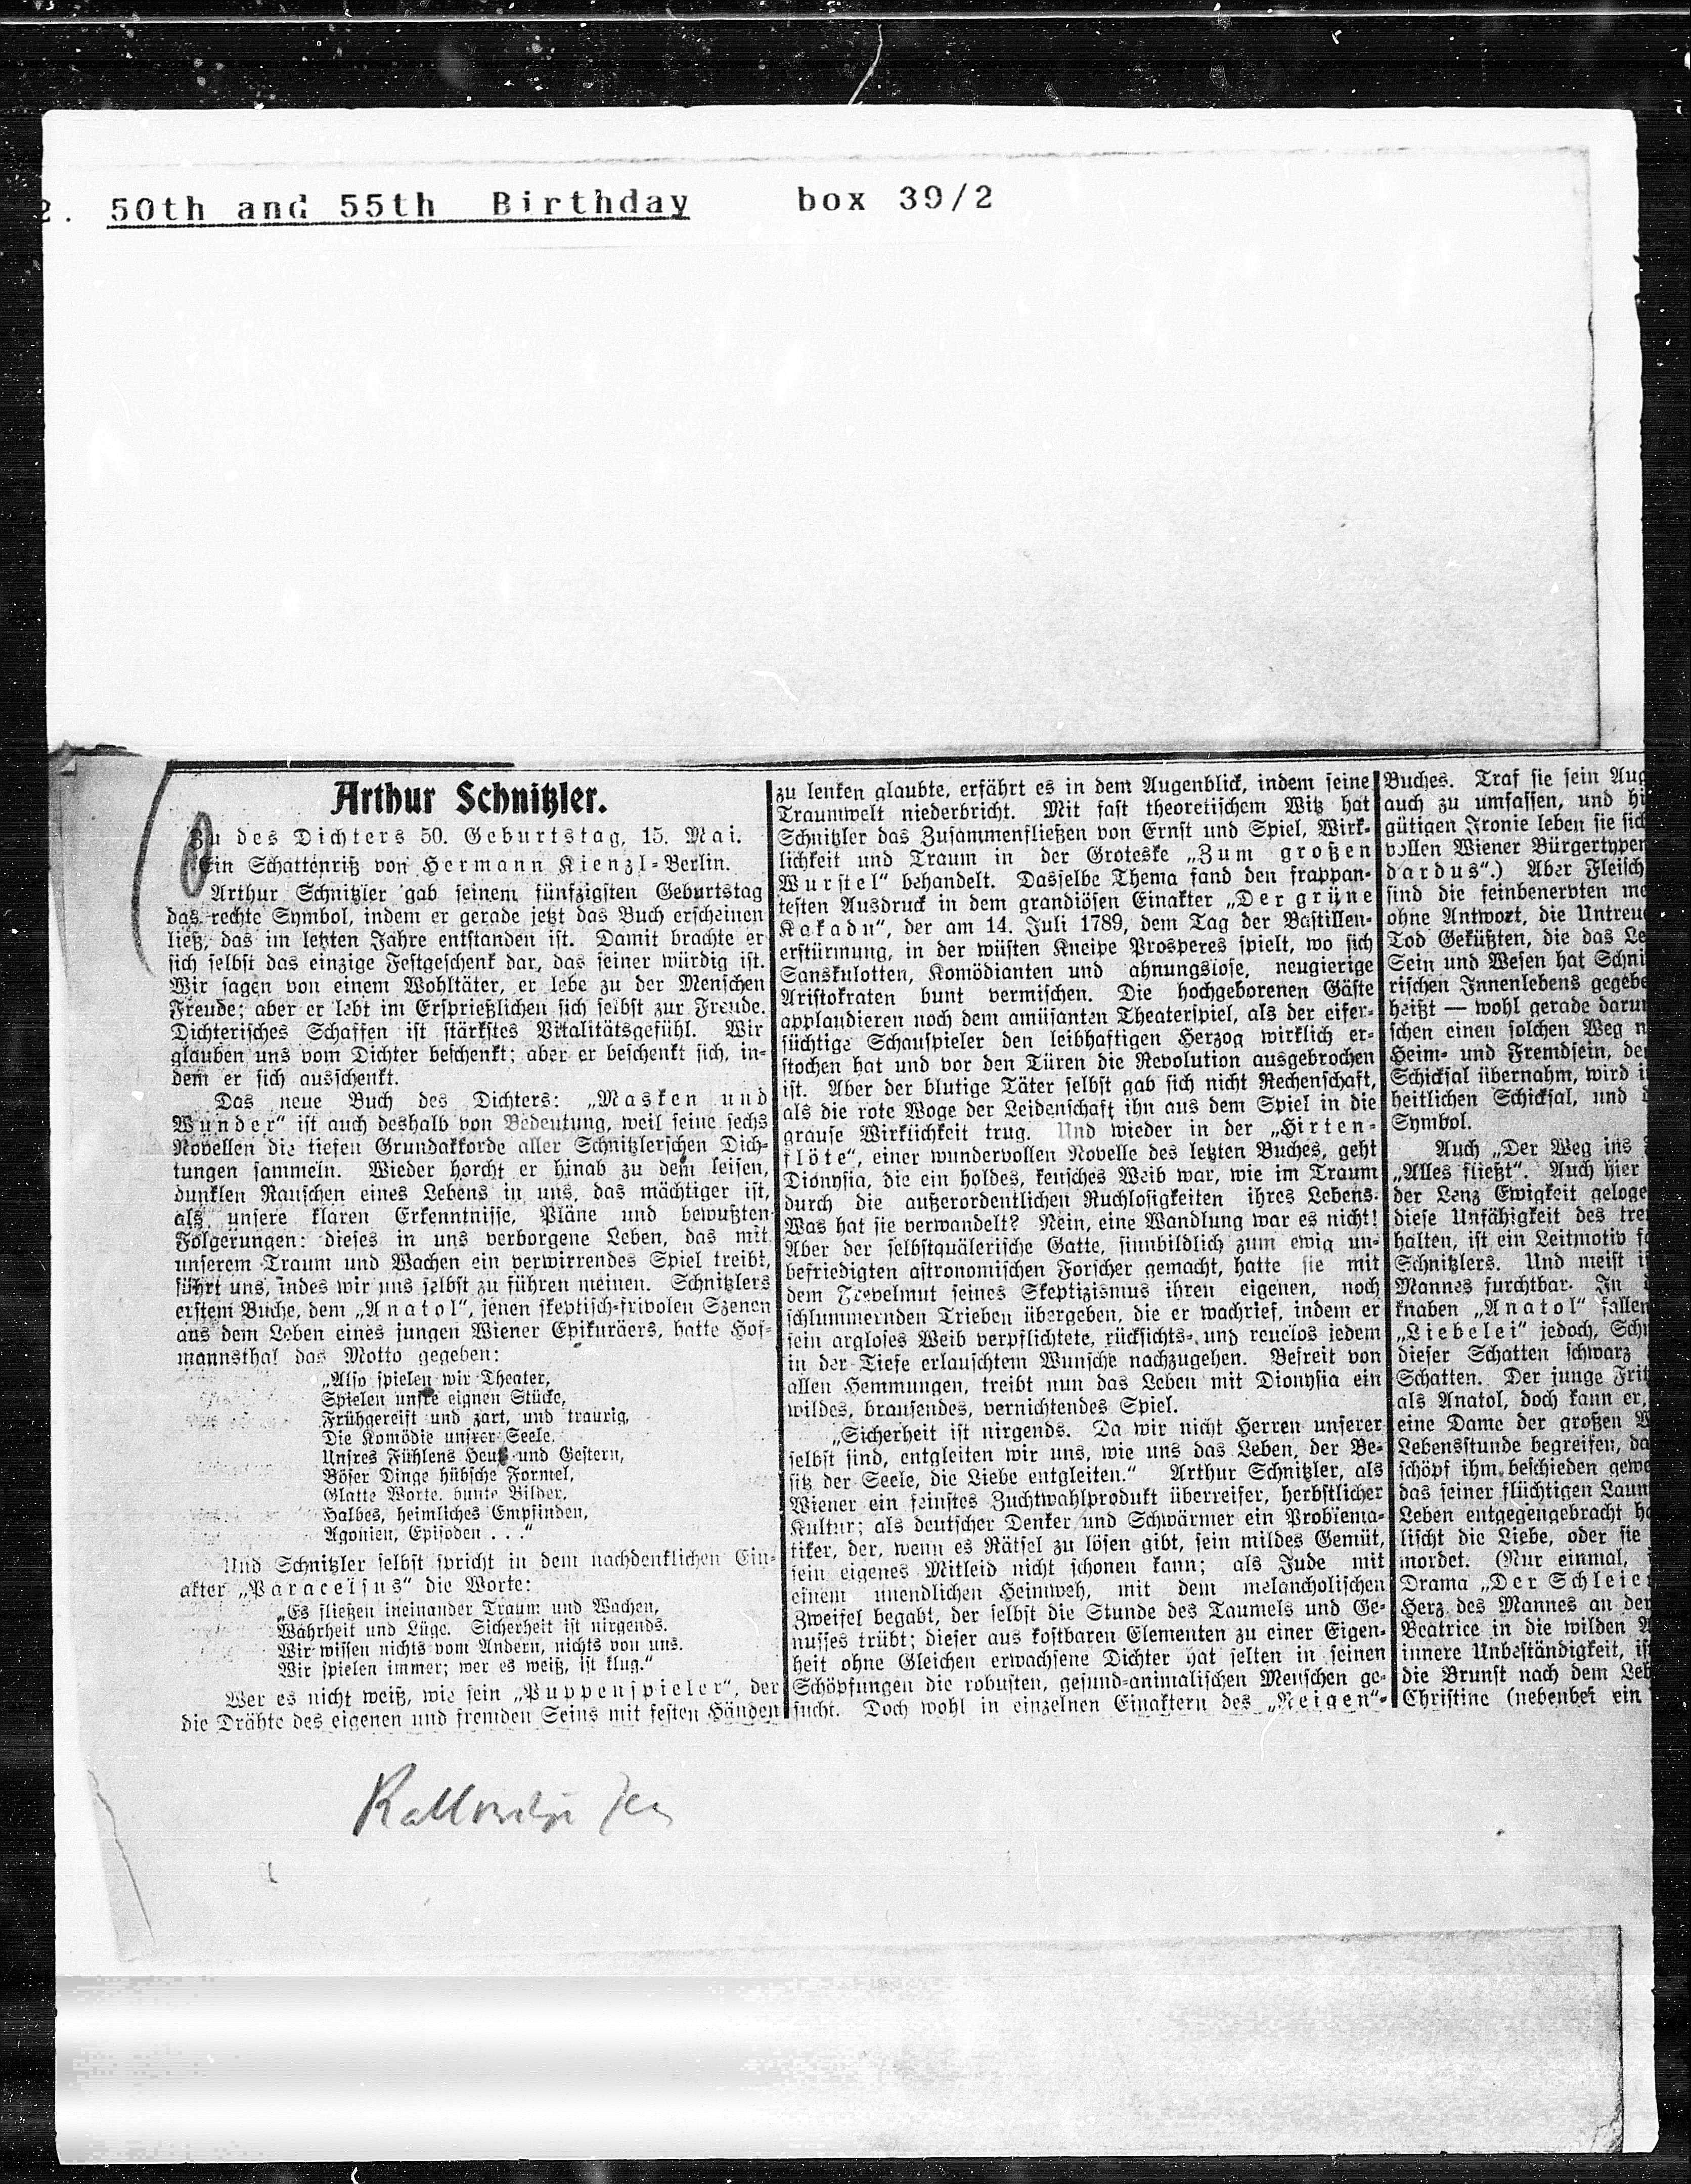 2. 50th and 55th Birthday box 39/2
Arthur Schnitzler.
Zu des Dichters 50. Geburtstag, 15. Mai.
Ein Schattenriß von Hermann Kienzl-Berlin.
Arthur Schnitzler gab seinem fünfzigsten Geburtstag
das rechte Symbol, indem er gerade jetzt das Buch erscheinen
ließ, das im letzten Jahre entstanden ist. Damit brachte er
sich selbst das einzige Festgeschenk dar, das seiner würdig ist.
Wir sagen von einem Wohltäter, er lebe zu der Menschen
Freude; aber er lebt im Ersprießlichen sich selbst zur Freude.
Dichterisches Schaffen ist stärkstes Vitalitätsgefühl. Wir
glauben uns vom Dichter beschenkt; aber er beschenkt sich, in-
dem er sich ausschenkt.
Das neue Buch des Dichters: „Masken und
Wunder“ ist auch deshalb von Bedeutung, weil seine sechs
Novellen die tiefen Grundakkorde aller Schnitzlerschen Dich-
tungen sammeln. Wieder horcht er hinab zu dem leisen,
dunklen Rauschen eines Lebens in uns, das mächtiger ist,
als unsere klaren Erkenntnisse, Pläne und bewußten
Folgerungen: dieses in uns verborgene Leben, das mit
unserem Traum und Wachen ein verwirrendes Spiel treibt,
führt uns, indes wir uns selbst zu führen meinen. Schnitzlers
erstem Buche, dem „Anatol“, jenen skeptisch-frivolen Szenen
aus dem Leben eines jungen Wiener Epikuräers, hatte Hof-
mannsthal das Motto gegeben:
„Also spielen wir Theater,
Spielen unsre eignen Stücke,
Frühgereift und zart, und traurig,
Die Komödie unsrer Seele,
Unsres Fühlens Heut und Gestern,
Böser Dinge hübsche Formel,
Glatte Worte, bunte Bilder,
Halbes, heimliches Empfinden,
Agonien, Episoden . . .“
Und Schnitzler selbst spricht in dem nachdenklichen Ein-
akter „Paracelsus“ die Worte:
„Es fließen ineinander Traum und Wachen,
Wahrheit und Lüge. Sicherheit ist nirgends.
Wir wissen nichts vom Andern, nichts von uns.
Wir spielen immer; wer es weiß, ist klug.“
Wer es nicht weiß, wie sein „Puppenspieler“, der
die Drähte des eigenen und fremden Seins mit festen Händen
zu lenken glaubte, erfährt es in dem Augenblick, indem seine
Traumwelt niederbricht. Mit fast theoretischem Witz hat
Schnitzler das Zusammenfließen von Ernst und Spiel, Wirk-
lichkeit und Traum in der Groteske „Zum großen
Wurstel“ behandelt. Dasselbe Thema fand den frappan-
testen Ausdruck in dem grandiösen Einakter „Der grüne
Kakadu“, der am 14. Juli 1789, dem Tag der Bastillen-
erstürmung, in der wüsten Kneipe Prosperes spielt, wo sich
Sanskulotten, Komödianten und ahnungslose, neugierige
Aristokraten bunt vermischen. Die hochgeborenen Gäste
applaudieren noch dem amüsanten Theaterspiel, als der eifer-
süchtige Schauspieler den leibhaftigen Herzog wirklich er-
stochen hat und vor den Türen die Revolution ausgebrochen
ist. Aber der blutige Täter selbst gab sich nicht Rechenschaft,
als die rote Woge der Leidenschaft ihn aus dem Spiel in die
grause Wirklichkeit trug. Und wieder in der „Hirten-
flöte“, einer wundervollen Novelle des letzten Buches, geht
Dionysia, die ein holdes, keusches Weib war, wie im Traum
durch die außerordentlichen Ruchlosigkeiten ihres Lebens.
Was hat sie verwandelt? Nein, eine Wandlung war es nicht!
Aber der selbstquälerische Gatte, sinnbildlich zum ewig un-
befriedigten astronomischen Forscher gemacht, hatte sie mit
dem Frevelmut seines Skeptizismus ihren eigenen, noch
schlummernden Trieben übergeben, die er wachrief, indem er
sein argloses Weib verpflichtete, rücksichts- und reuelos jedem
in der Tiefe erlauschtem Wunsche nachzugehen. Befreit von
allen Hemmungen, treibt nun das Leben mit Dionysia ein
wildes, brausendes, vernichtendes Spiel.
„Sicherheit ist nirgends. Da wir nicht Herren unserer
selbst sind, entgleiten wir uns, wie uns das Leben, der Be-
sitz der Seele, die Liebe entgleiten.“ Arthur Schnitzler, als
Wiener ein feinstes Zuchtwahlprodukt überreifer, herbstlicher
Kultur; als deutscher Denker und Schwärmer ein Problema-
tiker, der, wenn es Rätsel zu lösen gibt, sein mildes Gemüt,
sein eigenes Mitleid nicht schonen kann; als Jude mit
einem unendlichen Heimweh, mit dem melancholischen
Zweifel begabt, der selbst die Stunde des Taumels und Ge-
nusses trübt; dieser aus kostbaren Elementen zu einer Eigen-
heit ohne Gleichen erwachsene Dichter hat selten in seinen
Schöpfungen die robusten, gesund-animalischen Menschen ge-
sucht. Doch wohl in einzelnen Einaktern des „Reigen“-
Buches. Traf sie sein Aug
auch zu umfassen, und hi
gütigen Ironie leben sie sich
vollen Wiener Bürgertypen
dardus“.) Aber Fleisch
sind die feinbenervten me
ohne Antwort, die Untreue
Tod Geküßten, die das Le
Sein und Wesen hat Schni
rischen Innenlebens gegebe
heißt — wohl gerade darum
schen einen solchen Weg n
Heim- und Fremdsein, de
Schicksal übernahm, wird i
heitlichen Schicksal, und d
Symbol.
Auch „Der Weg ins
„Alles fließt“. Auch hier
der Lenz Ewigkeit geloge
diese Unfähigkeit des tre
halten, ist ein Leitmotiv
Schnitzlers. Und meist i
Mannes furchtbar. In
knaben „Anatol“ fallen
„Liebelei“ jedoch, Sch
dieser Schatten schwarz
Schatten. Der junge Frit
als Anatol, doch kann er,
eine Dame der großen W
Lebensstunde begreifen, da
schöpf ihm beschieden gewe
das seiner flüchtigen Laun
Leben entgegengebracht ha
lischt die Liebe, oder sie
mordet. (Nur einmal,
Drama „Der Schleier
Herz des Mannes an der
Beatrice in die wilden
innere Unbeständigkeit, is
die Brunst nach dem Leb
Christine (nebenbei ein